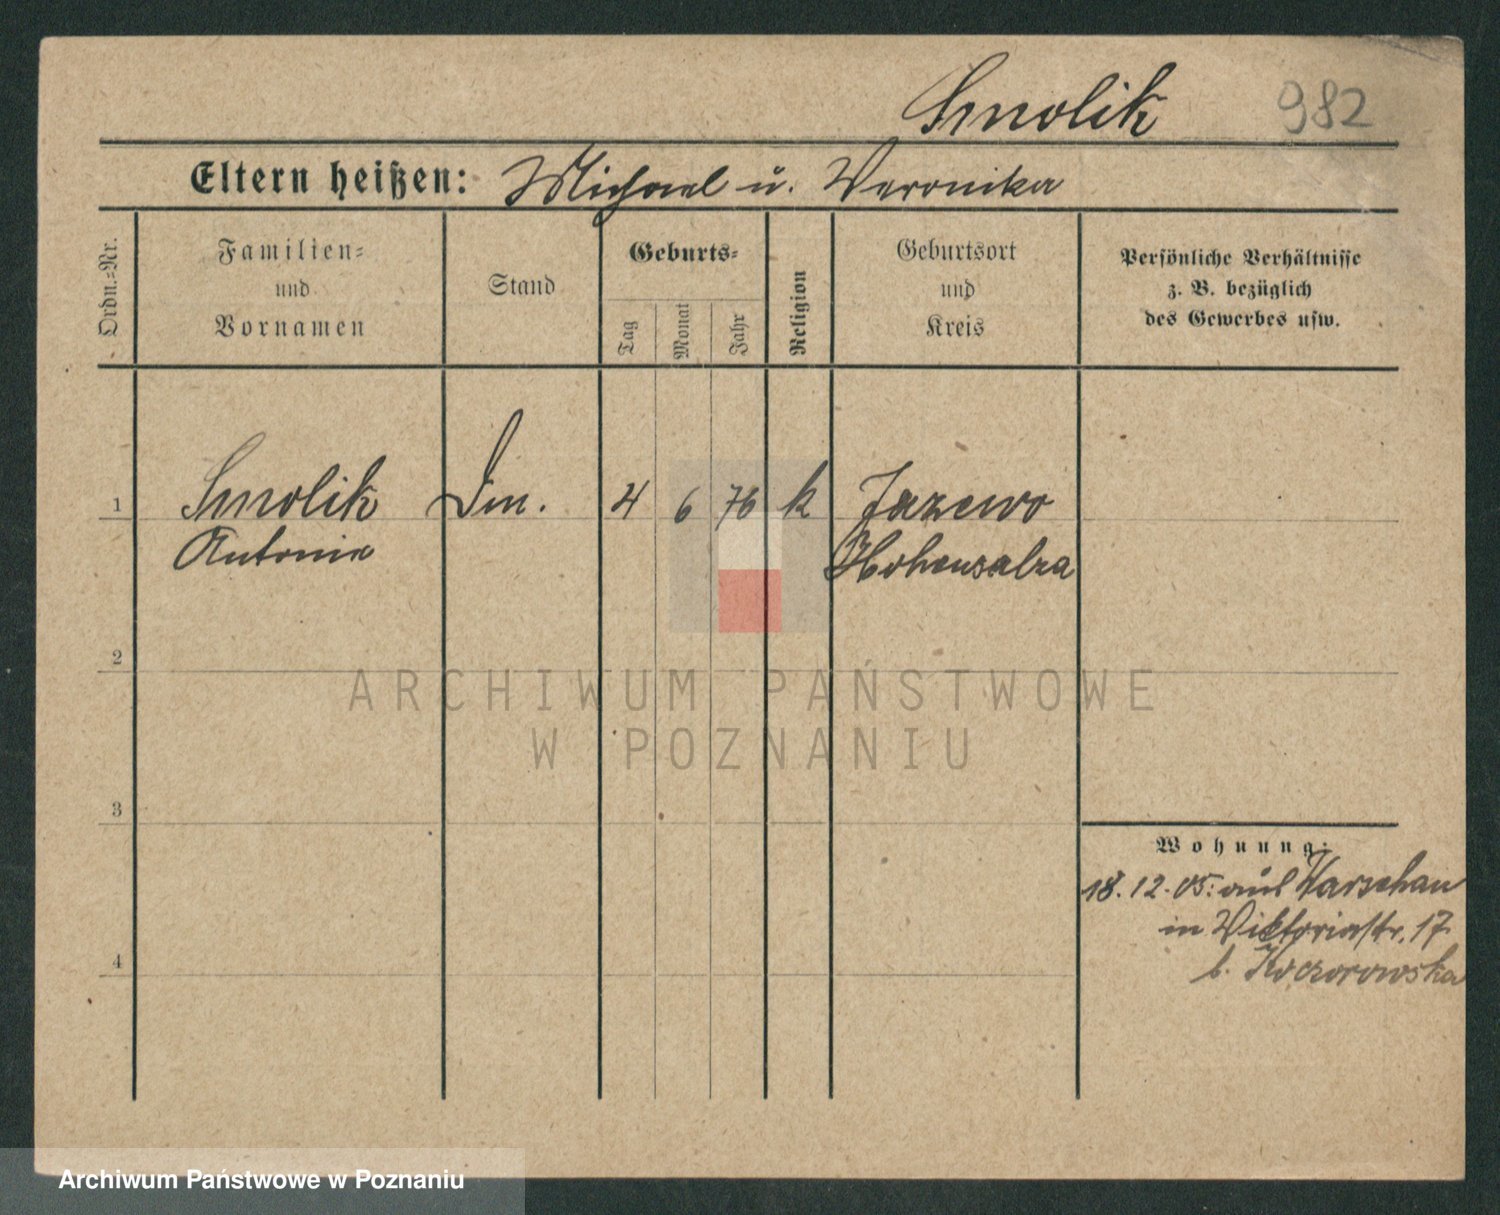 Smolik 982
Eltern heißen: Michael u. Veronika
Ordn.=Nr.
Familien=
und
Vornamen
Stand
Geburts=
Tag
Monat
Jahr
Religion
Geburtsort
und
Kreis
Persönliche Verhältnisse
z. B. bezüglich
des Gewerbes usw.
1 Smolik 4 6 76 k Jazewo
Antonie Hohensalza
2
ARCHIWUM PAŃSTWOWE
W POZNANIU
3
Wohnung:
18.12.05: aus Warschau
in Viktoriastr. 17
b. Koczorowska
4
Archiwum Państwowe w Poznaniu